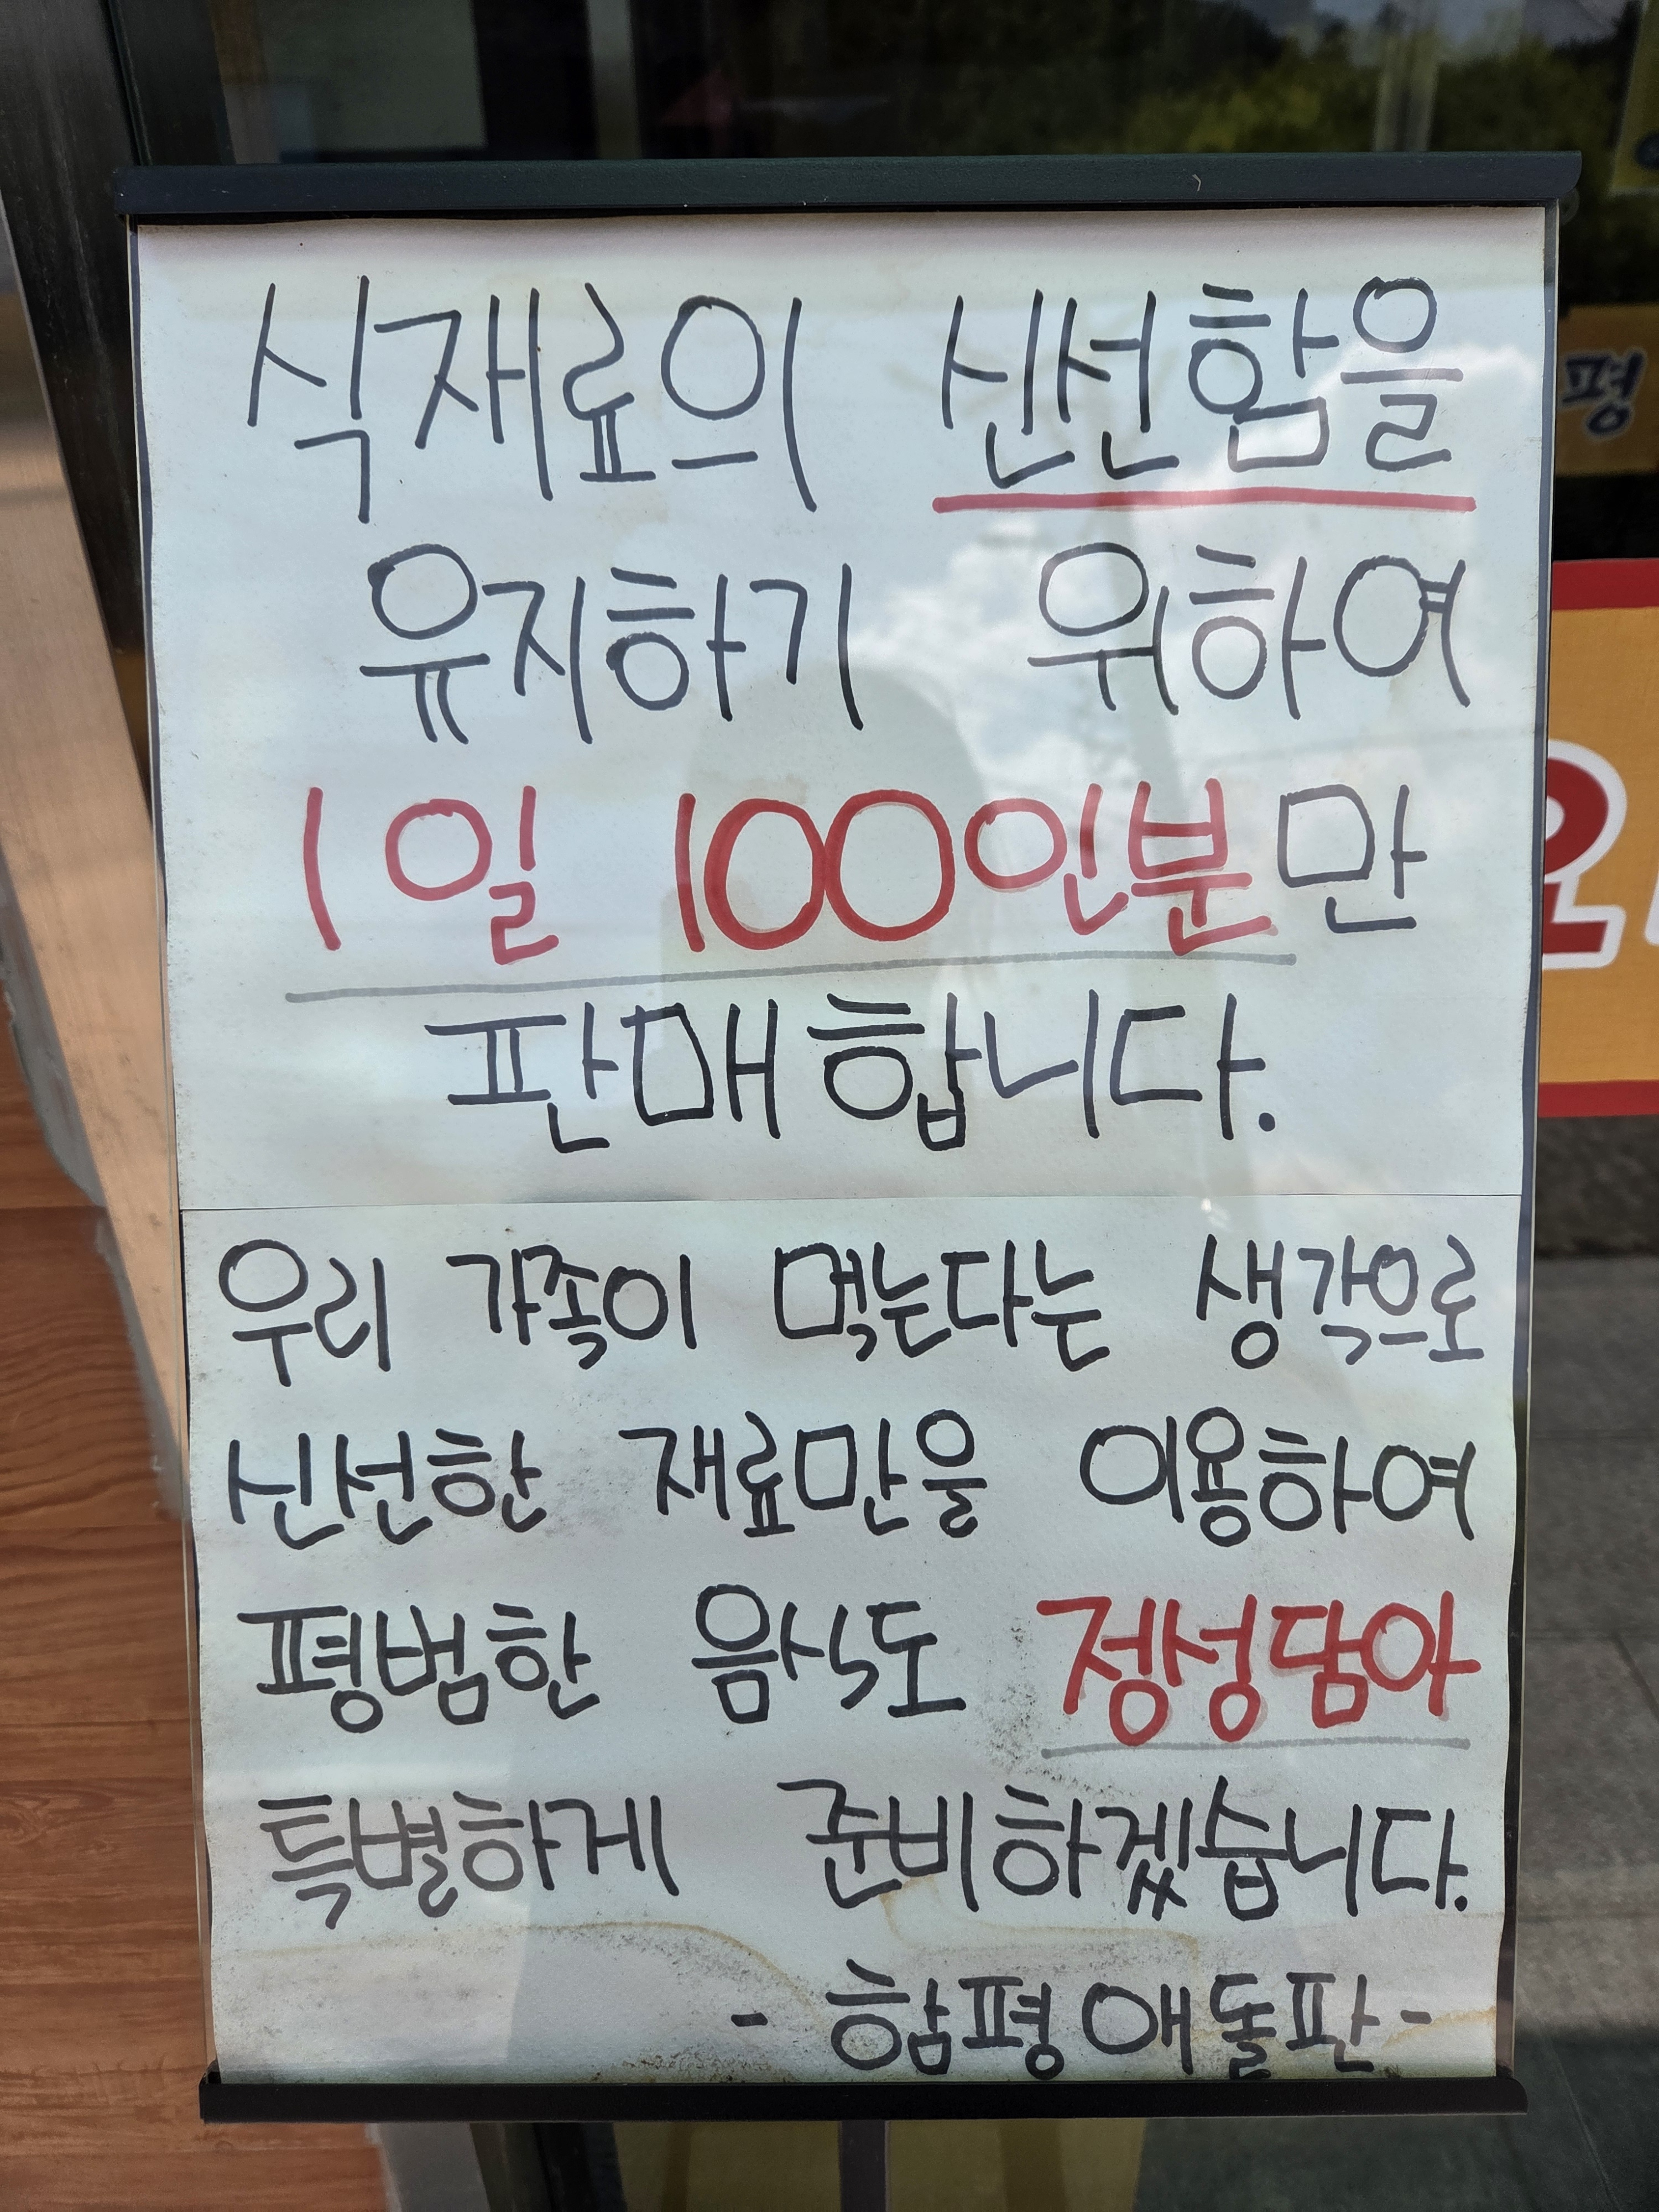 식재료의 신선함을
유지하기 위하여
1일 100인분만
판매합니다.
우리 가족이 먹는다는 생각으로
신선한 재료만을 이용하여
평범한 음식도 정성담아
특별하게 준비하겠습니다.
- 함평애돌판 -
평